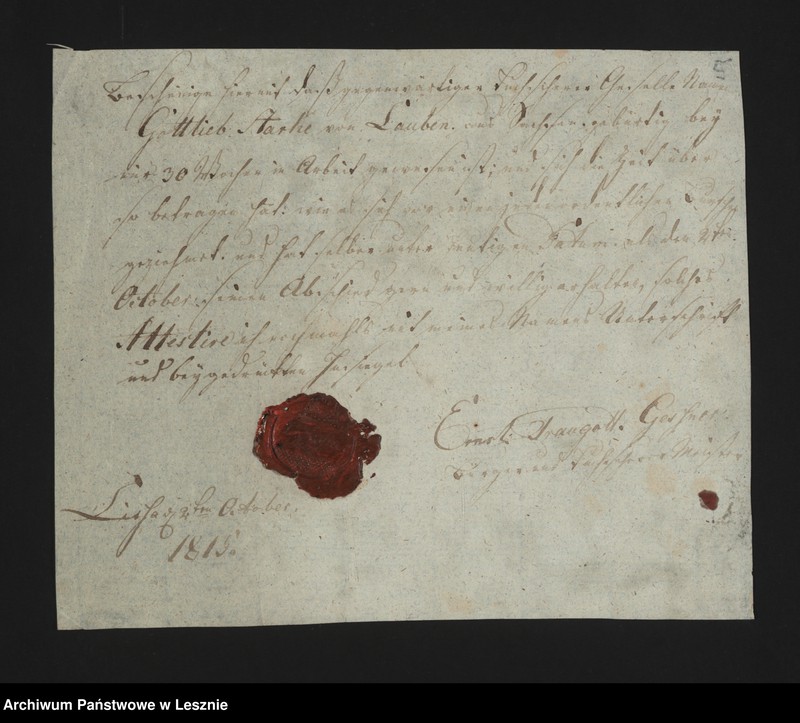 Bescheinige hiermit daß gegenwärtiger Tuchscherer Geselle Nam
Gottlieb Starke von Lauben. aus Sachsen gebürtig bey
mir 30 Wochen in Arbeit gewesen ist; und sich die Zeit über
so betragen hat: wie es sich vor einen ordentlichen
geziemet. und hat selber unter heutigen Dato den
October. seinen Abschied gern und willig erhalten, solches
Attestire ich nochmahls mit meines Namens Unterschrift
und beygedruckten Insiegel
Ernst. Traugott. Geßner.
Bürger und Tuchscherer Meister
Lissa d 2ten October.
1815.
Archiwum Państwowe w Lesznie